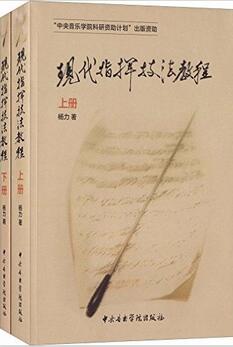 "中央音乐学院科研资助计划"出版资助
现代指挥技法教程
上册
杨力 著
中央音乐学院出版社
现代指挥技法教程
上册
杨力 著
中央音乐学院出版社
现代指挥技法教程
下册
杨力 著